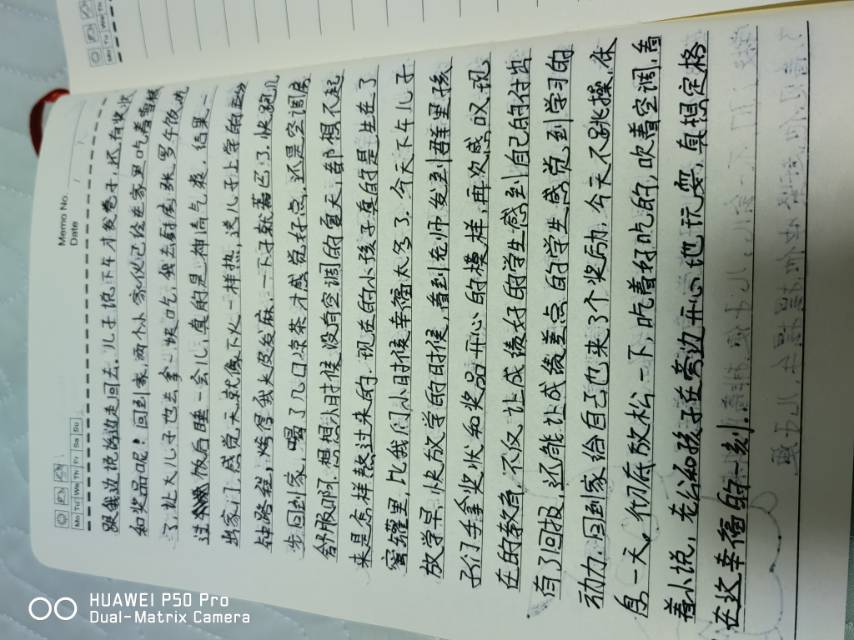 Memo No.
Date
Mo Tu We Th Fr Sa Su
跟我边说边走回去。儿子说下午才发卷子,还有奖状
和奖品呢!回到家,两个小家伙已经在家里吃着雪糕
了,让大儿子也去拿一根吃,我去厨房张罗午饭,吃
过饭后睡一会儿,真的是神清气爽,结果一
出家门,感觉天就像下火一样热,送儿子上学的
钟路程,烤得我头皮发麻,一下子就蔫巴了,快跑几
步回到家,喝了几口凉茶才感觉好点,还是空调房
舒服啊,想想小时候没有空调的夏天,都想不起
来是怎样熬过来的,现在的小孩子真的是生在了
蜜罐里,比我们小时候幸福太多了,今天下午儿子
放学早,快放学的时候,看到老师发到群里孩
子们手拿奖状和奖品开心的模样,再次感叹现
在的教育,不仅让成绩好的学生感到自己的付出
有了回报,还能让成绩差点的学生感觉到学习的
动力,回到家给自己也来了个奖励,今天不跳操,休
息一天,彻底放松一下,吃着好吃的,吹着空调,看
着小说,老公和孩子在旁边开心地玩耍,真想定格
在这幸福的一刻.
HUAWEI P50 Pro
Dual-Matrix Camera